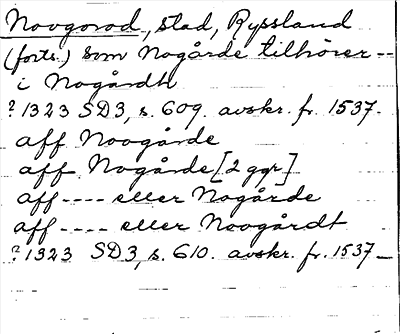 Novgorod, stad, Ryssland
(forts.) som Nogårde tilhörer --
i Nogårdh
? 1323 SD3, s. 609. avskr. fr. 1537.
aff Noogårde
aff Nogårde [2 ggr]
aff ---- eller Nogårde
aff ---- eller Noogårdt
? 1323 SD3, s. 610. avskr. fr. 1537._